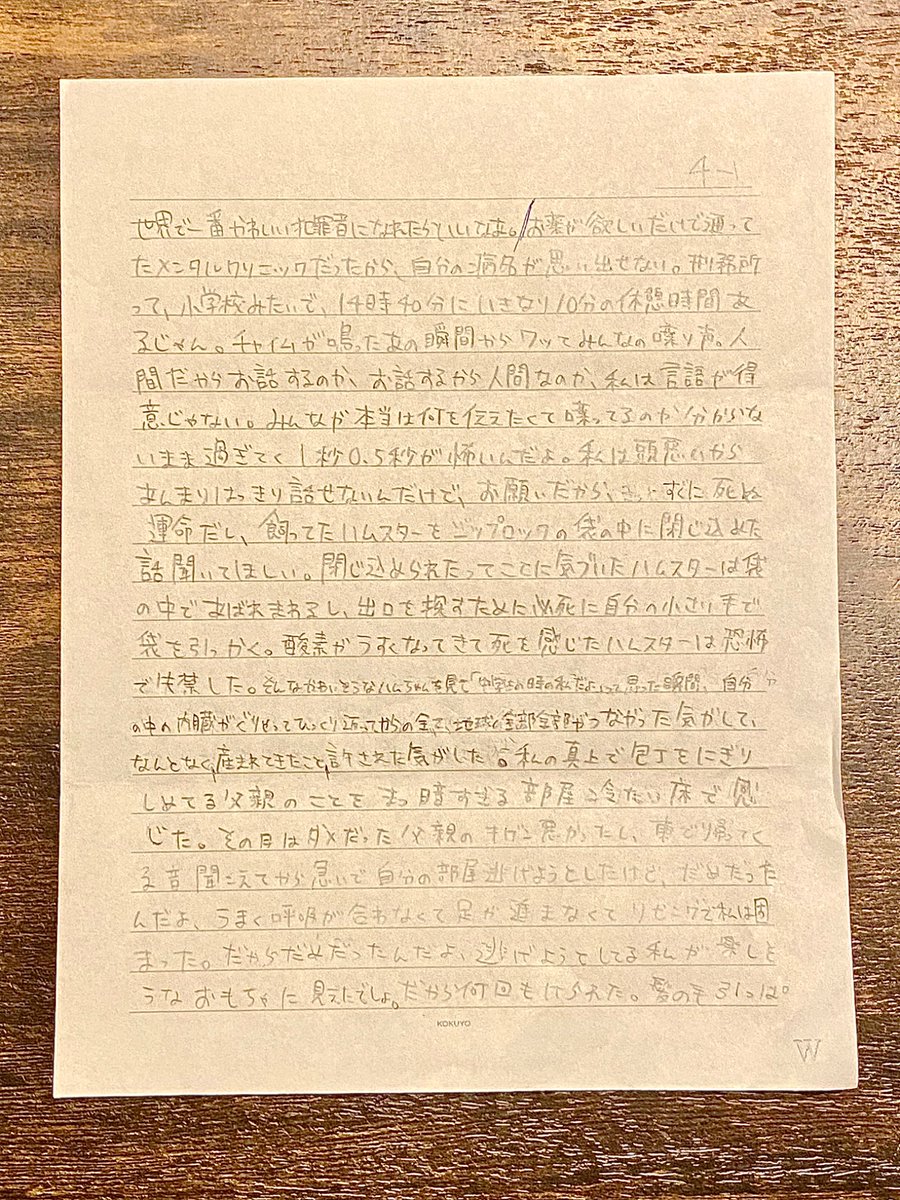 4-1
世界で一番かわいい犯罪者になれたらいいなあ。お薬が欲しいだけで通って
たメンタルクリニックだったから、自分の病名が思い出せない。刑務所
って、小学校みたいで、14時40分にいきなり10分の休憩時間あ
るじゃん。チャイムが鳴ったあの瞬間からワッてみんなの喋り声。人
間だからお話するのか、お話するから人間なのか、私は言語が得
意じゃない。みんなが本当は何を伝えたくて喋ってるのか分からな
いまま過ぎてく1秒0.5秒が怖いんだよ。私は頭悪いから
あんまりはっきり話せないんだけど、お願いだから、きっとすぐに死ぬ
運命だし、飼ってたハムスターをジップロックの袋の中に閉じ込めた
話聞いてほしい。閉じ込められたってことに気づいたハムスターは袋
の中であばれまわるし、出口を探すために必死に自分の小さい手で
袋を引っかく。酸素がうすくなってきて死を感じたハムスターは恐怖
で失禁した。そんなかわいそうなハムちゃんを見て「中学生の時の私だよ」って思った瞬間、自分
の中の内臓がぐりゃってひっくり返ってからの全て、地球と全部全部がつながった気がして、
なんとなく、産まれてきたこと、許された気がした。私の真上で包丁をにぎり
しめてる父親のことをまっ暗すぎる部屋の冷たい床で感
じた。その日はダメだった父親のキゲン悪かったし、車で帰ってく
る音聞こえてから急いで自分の部屋逃げようとしたけど、だめだった
んだよ、うまく呼吸が合わなくて足が進まなくてリビングで私は固
まった。だからだめだったんだよ、逃げようとしてる私が楽しそ
うなおもちゃに見えたでしょ。だから何回もけられた。髪の毛引っぱ。
KOKUYO
W